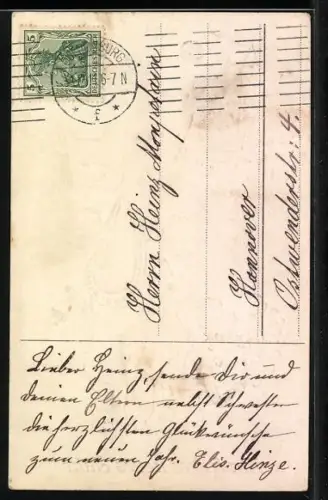 5
5
BURG
6-7 N
Herrn Heinz
Hannover
Ostwenderstr. 4.
Lieber Heinz, sende Dir und
deinen Eltern nebst Schwester
die herzlichsten Glückwünsche
zum neuen Jahr. Elis. Hinze.